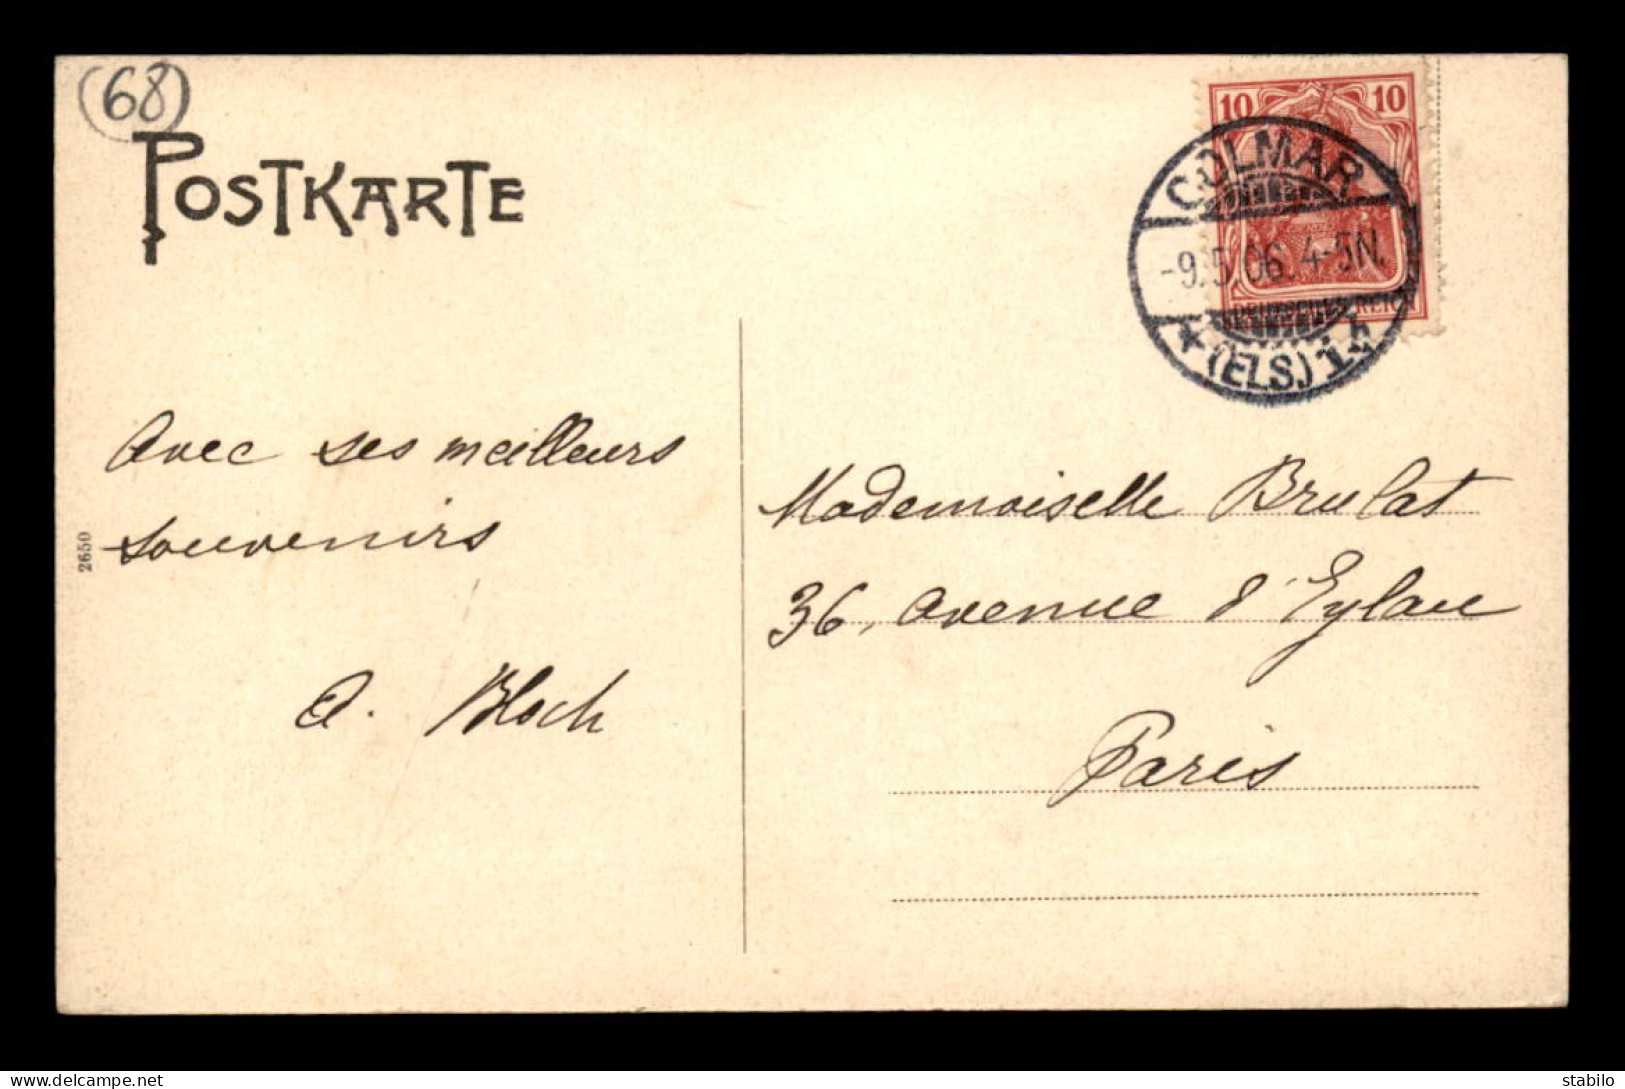 (68)
POSTKARTE
10 10
COLMAR
-9.5.06. 4-5N.
DEUTSCHES REICH
(ELS) 1
Avec ses meilleurs
souvenirs
A. Bloch
2650
Mademoiselle Brulat
36, avenue d'Eylau
Paris
stabilo